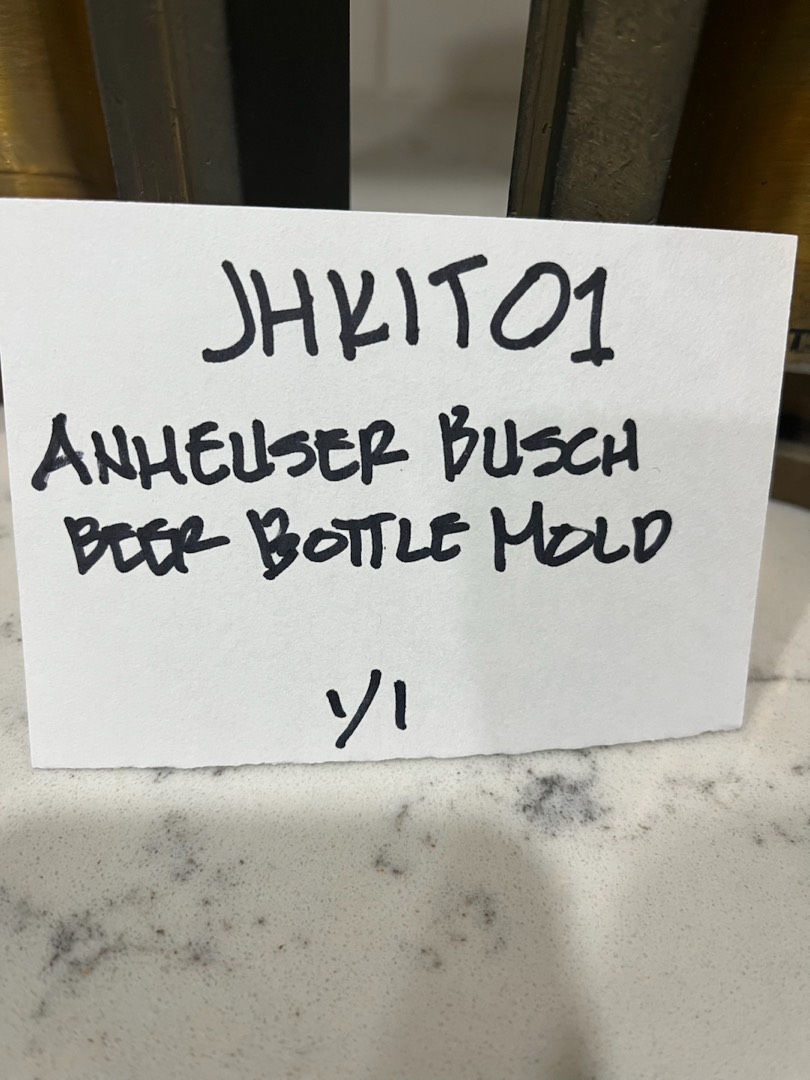 JHKIT01
ANHEUSER BUSCH
BEER BOTTLE MOLD
1/1